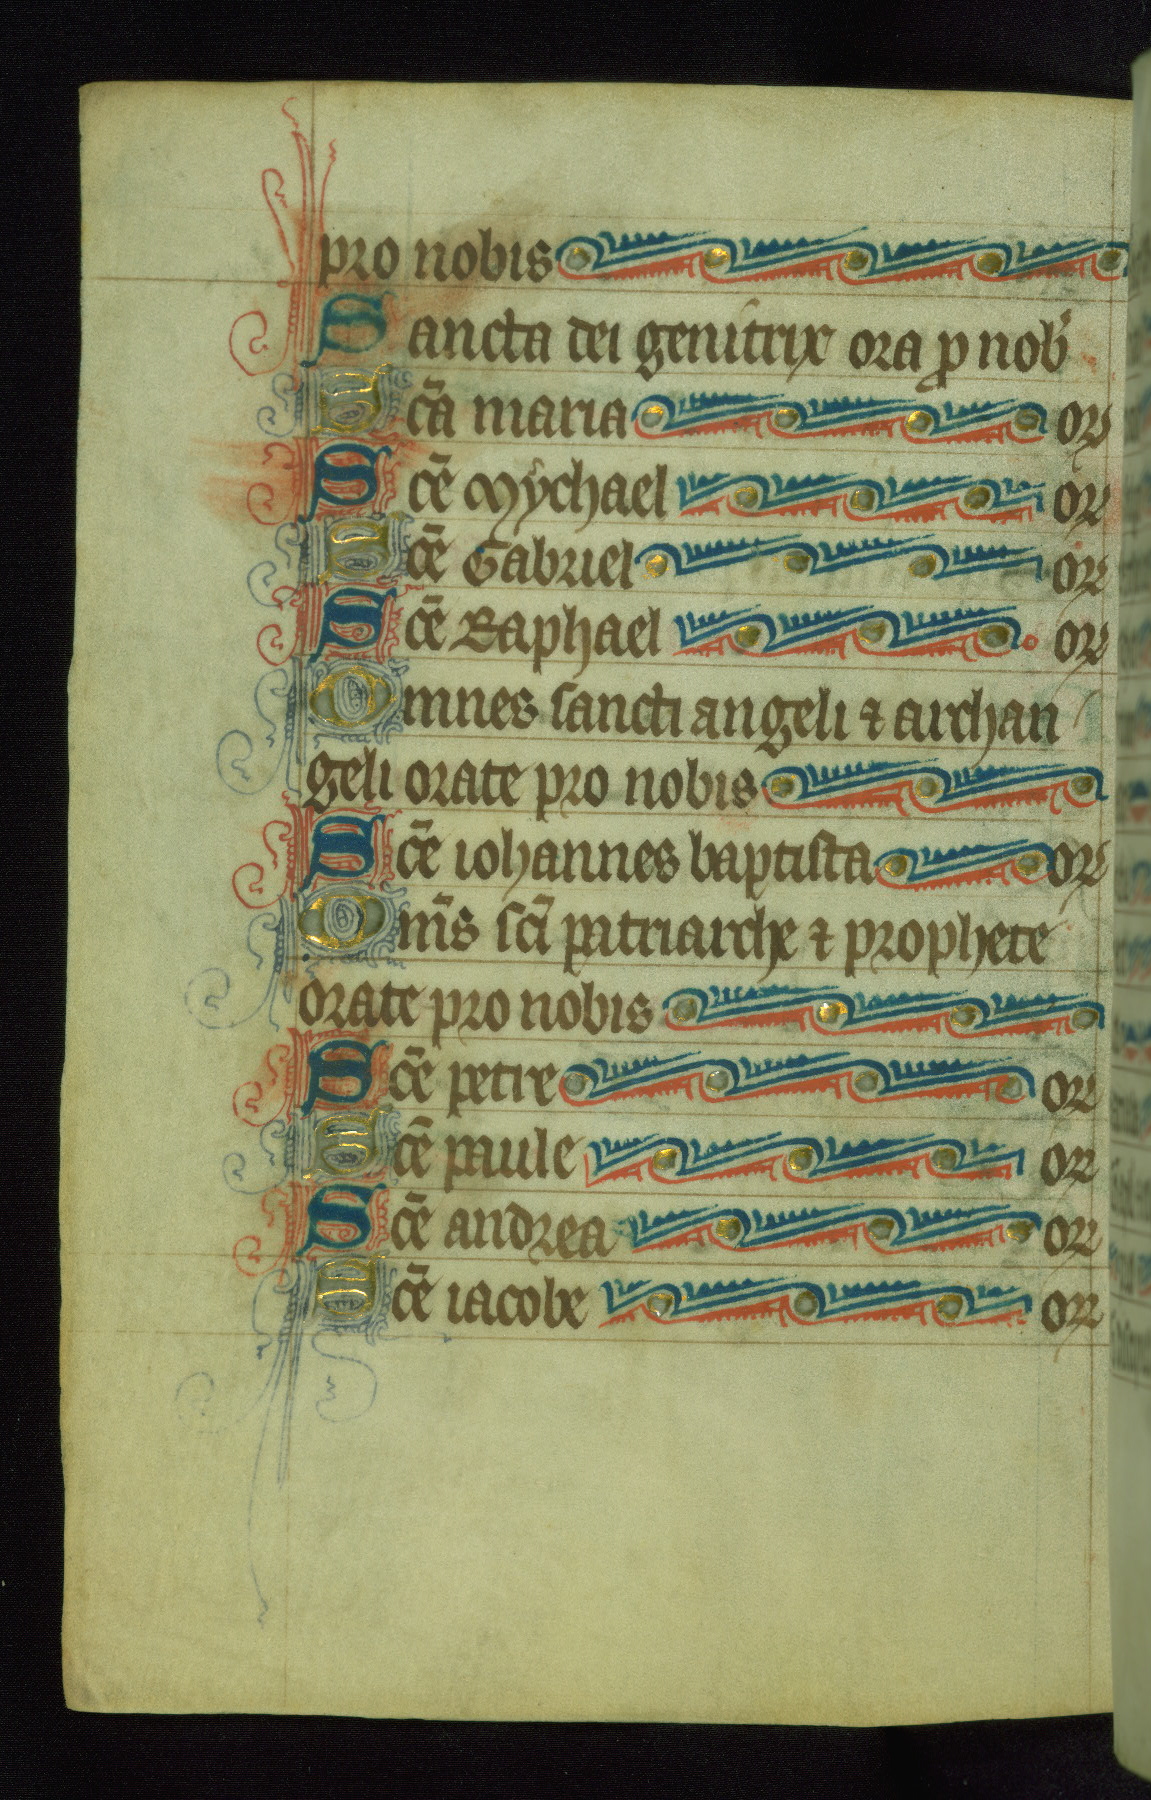 pro nobis
Sancta dei genitrix ora p nob
Sc̄a maria or
Sc̄e Mychael or
Sc̄e Gabriel or
Sc̄e Raphael or
Omnes sancti angeli ⁊ archan
geli orate pro nobis
Sc̄e iohannes baptista or
Om̄s sc̄i patriarche ⁊ prophete
orate pro nobis
Sc̄e petre or
Sc̄e paule or
Sc̄e andrea or
Sc̄e iacobe or